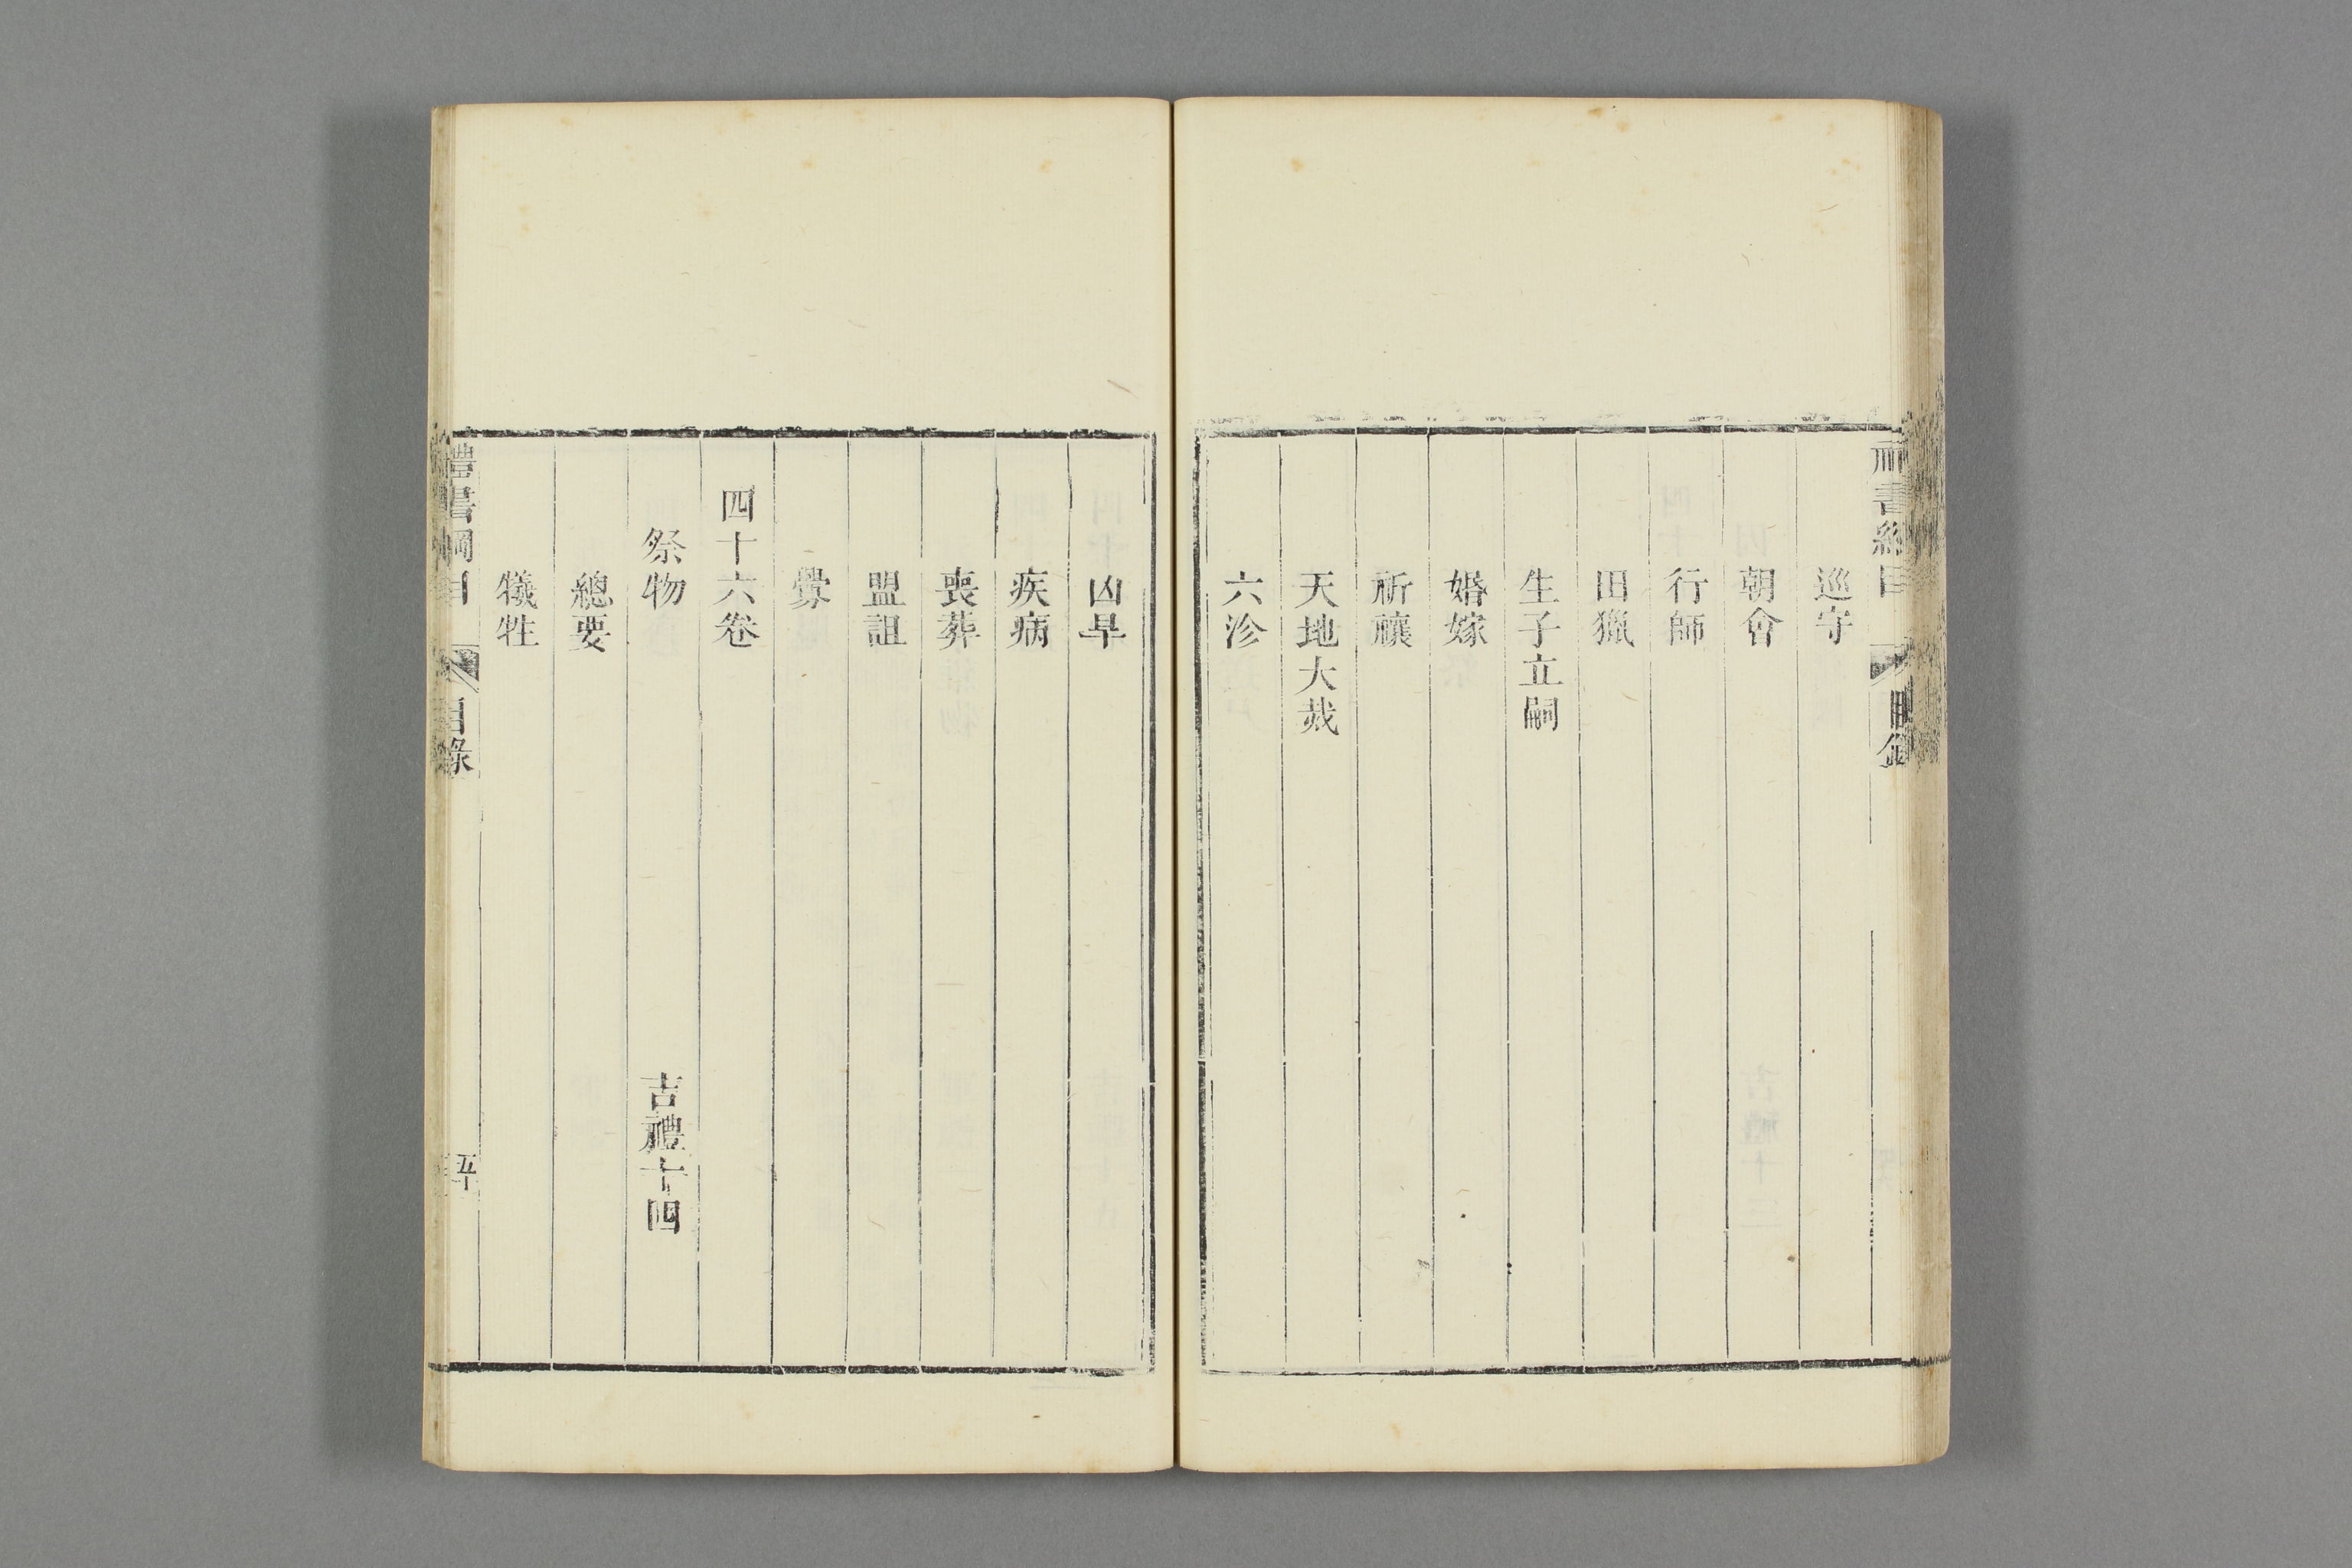 巡守
朝會
行師
田獵
生子立嗣
婚嫁
祈禳
天地大烖
六沴
凶旱
疾病
喪葬
盟詛
釁
四十六卷
祭物 吉禮十四
總要
犧牲
禮書綱目 目錄